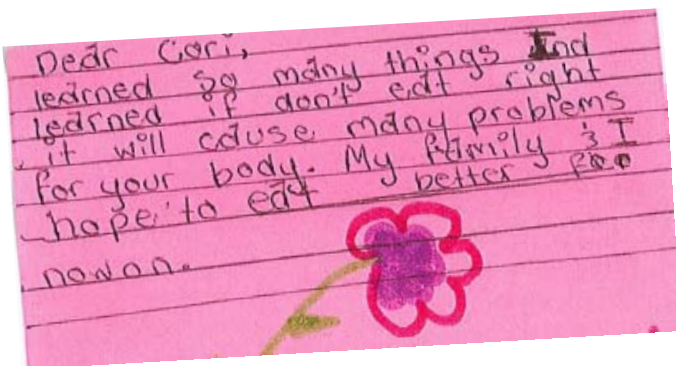 Dear Cori,
learned so many things And
learned if don't eat right
it will cause many problems
for your body. My family & I
hope to eat better
now on.